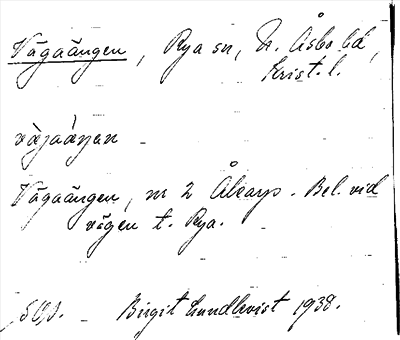 Vägaängen, Rya sn, N. Åsbo hd,
Krist. l.
vägaäŋan
Vägaängen, nr 2 Åkarp. Bel. vid
vägen t. Rya.
Birgit Lundkvist 1938.